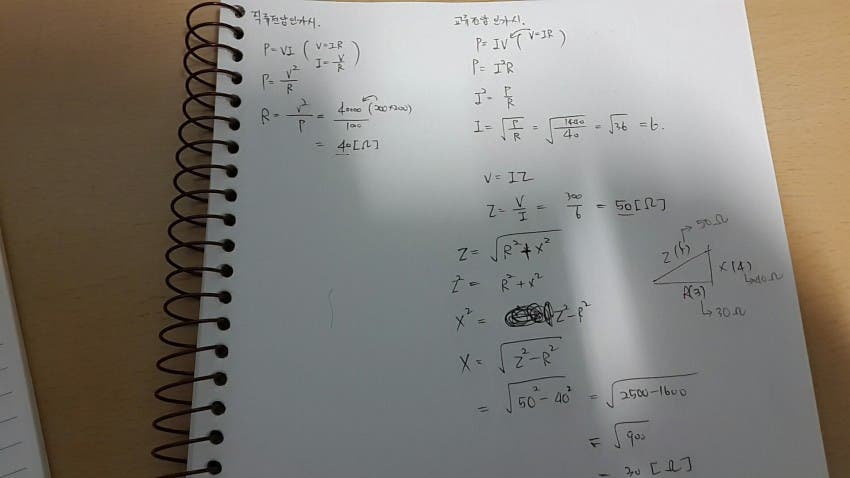 직류전압인가시.
P=VI ( V=IR
I=V/R )
P=V²/R
R=V²/P = 40000/100 (200×200)
= 40[Ω]
교류전압 인가시.
P=IV ( V=IR )
P=I²R
I²=P/R
I=√(P/R) = √(1440/40) = √36 = 6.
V=IZ
Z=V/I = 300/6 = 50[Ω]
Z=√(R²+X²)
Z²= R²+X²
X²= Z²-R²
X=√(Z²-R²)
=√(50²-40²) =√(2500-1600)
=√900
=30[Ω]
→50Ω
Z(5)
X(4)
↳40Ω
R(3)
↳30Ω